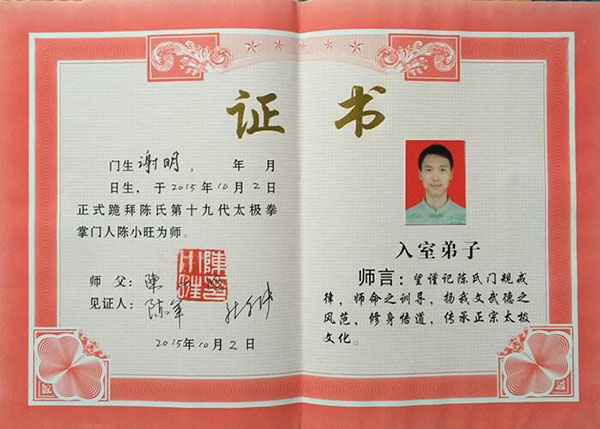 证 书
门生谢明， 年 月
日生，于2015年10月2日
正式跪拜陈氏第十九代太极拳
掌门人陈小旺为师。
师父：陳小旺
陳小旺
见证人：陈军
2015年10月2日
入室弟子
师言：望谨记陈氏门规戒
律，师命之训导，扬我文武德之
风范，修身悟道，传承正宗太极
文化。